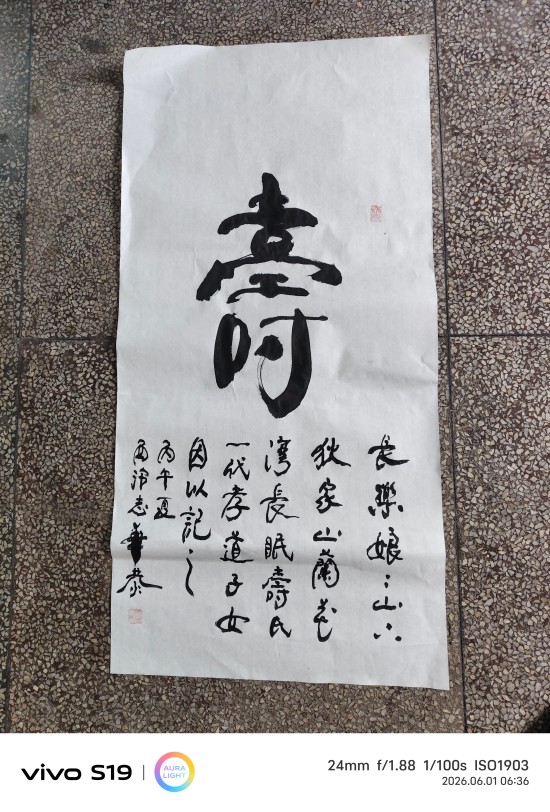 壽
長樂娘:山六
狄家山蘭花
灣長眠壽民
一代孝道子女
因以記之
丙午夏
vivo S19
AURA LIGHT
24mm f/1.88 1/100s ISO1903
2026.06.01 06:36